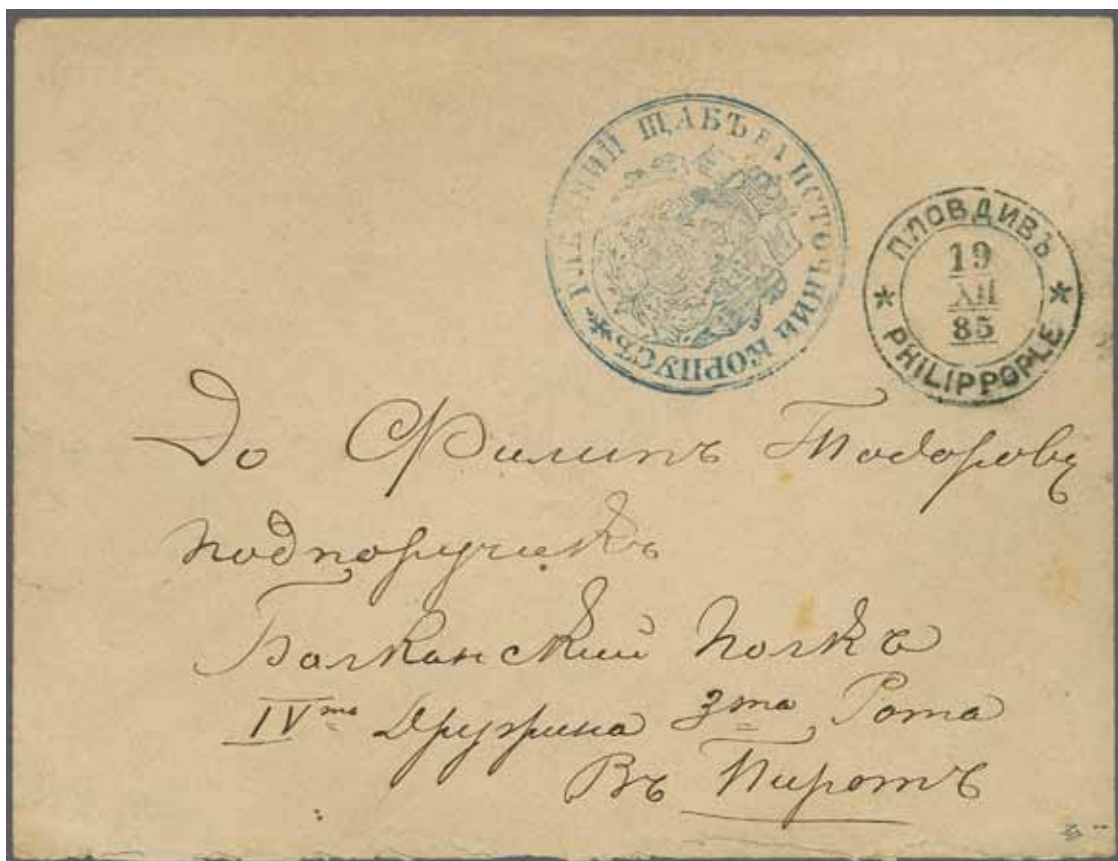 ГЛАВНИЙ ЩАБЪ НА ИСТОЧНИЙ КОРПУСЪ
ПЛОВДИВЪ
19
XII
85
PHILIPPOPLE
До Филипъ Тодоровъ
подпоручикъ
Балканский Полкъ
IVта Дружина 3та Рота
Въ Пиротъ